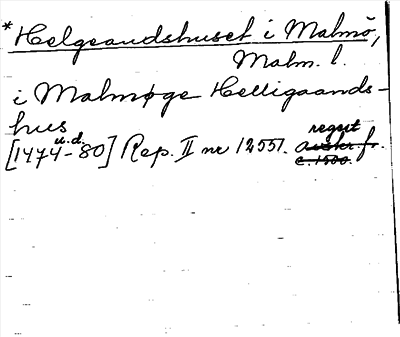 *Helgeandshuset i Malmö,
Malm. l.
i Malmøge Helligaands-
hus
[1474 u.d. -80] Rep. II nr 12551. regest
avskr. f.
c. 1500.